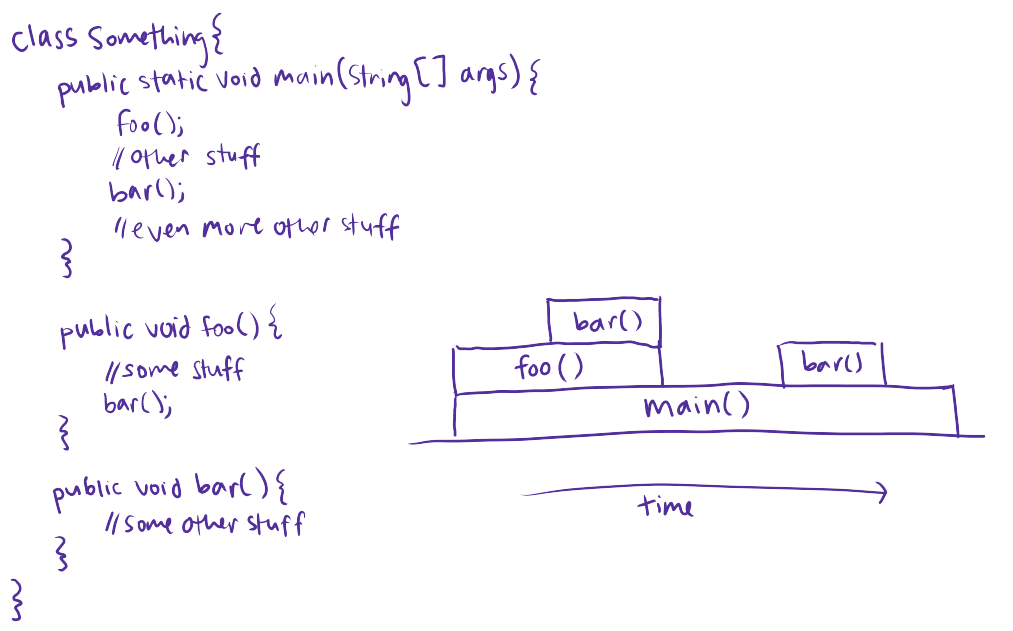 class Something{
public static void main(String[] args){
foo();
//other stuff
bar();
//even more other stuff
}
public void foo(){
//some stuff
bar();
}
public void bar(){
//some other stuff
}
}
bar()
foo()
bar()
main()
time